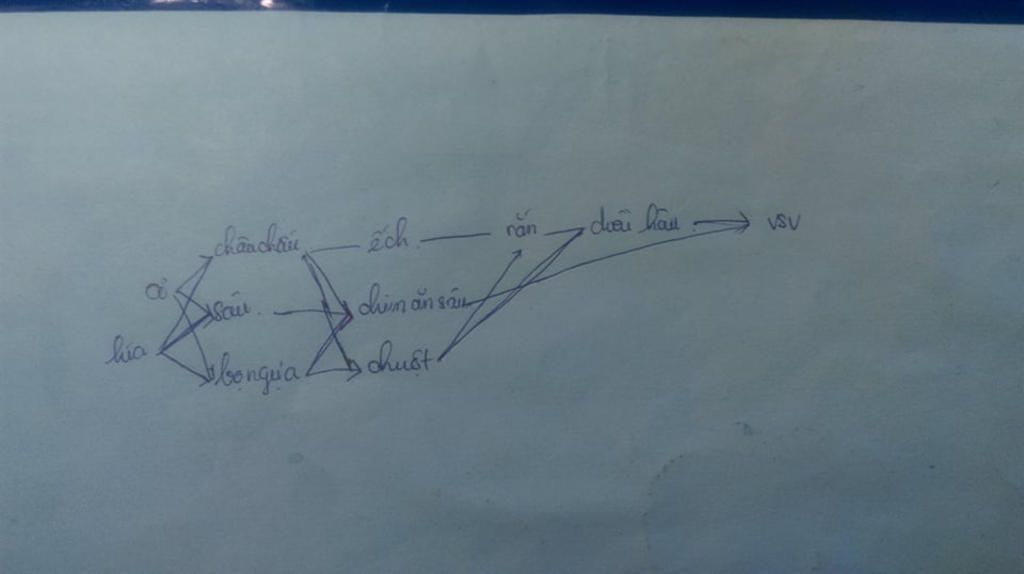 châu chấu ếch rắn diều hâu vsv
cỏ
sâu chim ăn sâu
lúa
bọ ngựa chuột